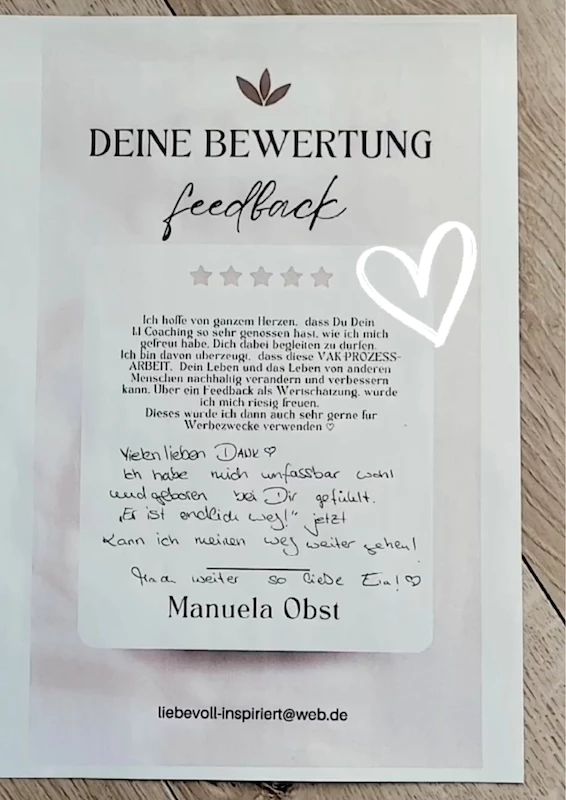 DEINE BEWERTUNG
feedback
Ich hoffe von ganzem Herzen, dass Du Dein
1:1 Coaching so sehr genossen hast, wie ich mich
gefreut habe, Dich dabei begleiten zu dürfen.
Ich bin davon überzeugt, dass diese VAK-PROZESS-
ARBEIT, Dein Leben und das Leben von anderen
Menschen nachhaltig verändern und verbessern
kann. Über ein Feedback als Wertschätzung, würde
ich mich riesig freuen.
Dieses würde ich dann auch sehr gerne für
Werbezwecke verwenden ♡
Vielen lieben DANK ♡
Ich habe mich unfassbar wohl
und geboren bei Dir gefühlt.
„Er ist endlich weg!" jetzt
kann ich meinen weg weiter gehen!
weiter so liebe
Manuela Obst
liebevoll-inspiriert@web.de